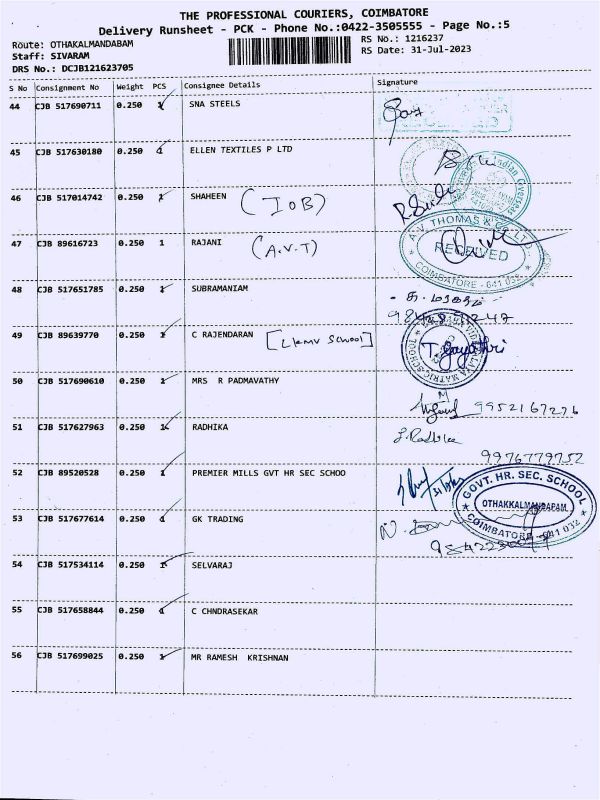 THE PROFESSIONAL COURIERS, COIMBATORE
Delivery Runsheet - PCK - Phone No.:0422-3505555 - Page No.:5
Route: OTHAKALMANDABAM RS No.: 1216237
Staff: SIVARAM RS Date: 31-Jul-2023
DRS No.: DCJB121623705
S No Consignment No Weight PCS Consignee Details Signature
44 CJB 517690711 0.250 1 SNA STEELS
45 CJB 517630180 0.250 1 ELLEN TEXTILES P LTD
46 CJB 517014742 0.250 1 SHAHEEN (IOB)
47 CJB 89616723 0.250 1 RAJANI (A.V.T)
A.V. THOMAS & CO. LTD
RECEIVED
COIMBATORE - 641 032
48 CJB 517651785 0.250 1 SUBRAMANIAM
49 CJB 89639770 0.250 1 C RAJENDARAN [ School] T. Gayathri
MATRIC. SCHOOL
50 CJB 517690610 0.250 1 MRS R PADMAVATHY
9952167276
51 CJB 517627963 0.250 1 RADHIKA
9976779752
52 CJB 89520528 0.250 1 PREMIER MILLS GVT HR SEC SCHOO
GOVT. HR. SEC. SCHOOL
OTHAKKALMANDAPAM
COIMBATORE - 641 032
53 CJB 517677614 0.250 1 GK TRADING
54 CJB 517534114 0.250 1 SELVARAJ
55 CJB 517658844 0.250 1 C CHNDRASEKAR
56 CJB 517699025 0.250 1 MR RAMESH KRISHNAN